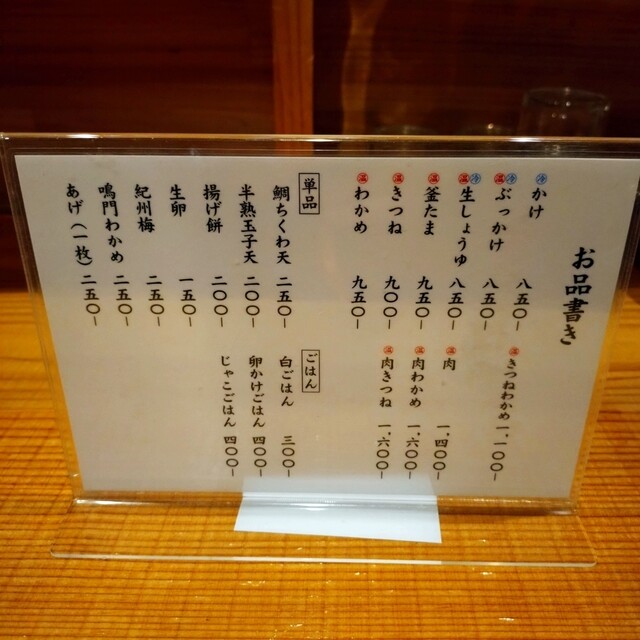 お品書き
冷 かけ 八五〇ー
冷 温 ぶっかけ 八五〇ー
冷 温 生しょうゆ 八五〇ー
温 釜たま 九五〇ー
温 きつね 九〇〇ー
温 わかめ 九五〇ー
温 きつねわかめ 一、一〇〇ー
温 肉 一、四〇〇ー
温 肉わかめ 一、六〇〇ー
温 肉きつね 一、六〇〇ー
単品
鯛ちくわ天 二五〇ー
半熟玉子天 二〇〇ー
揚げ餅 二〇〇ー
生卵 一五〇ー
紀州梅 二五〇ー
鳴門わかめ 二五〇ー
あげ（一枚） 二五〇ー
ごはん
白ごはん 三〇〇ー
卵かけごはん 四〇〇ー
じゃこごはん 四〇〇ー